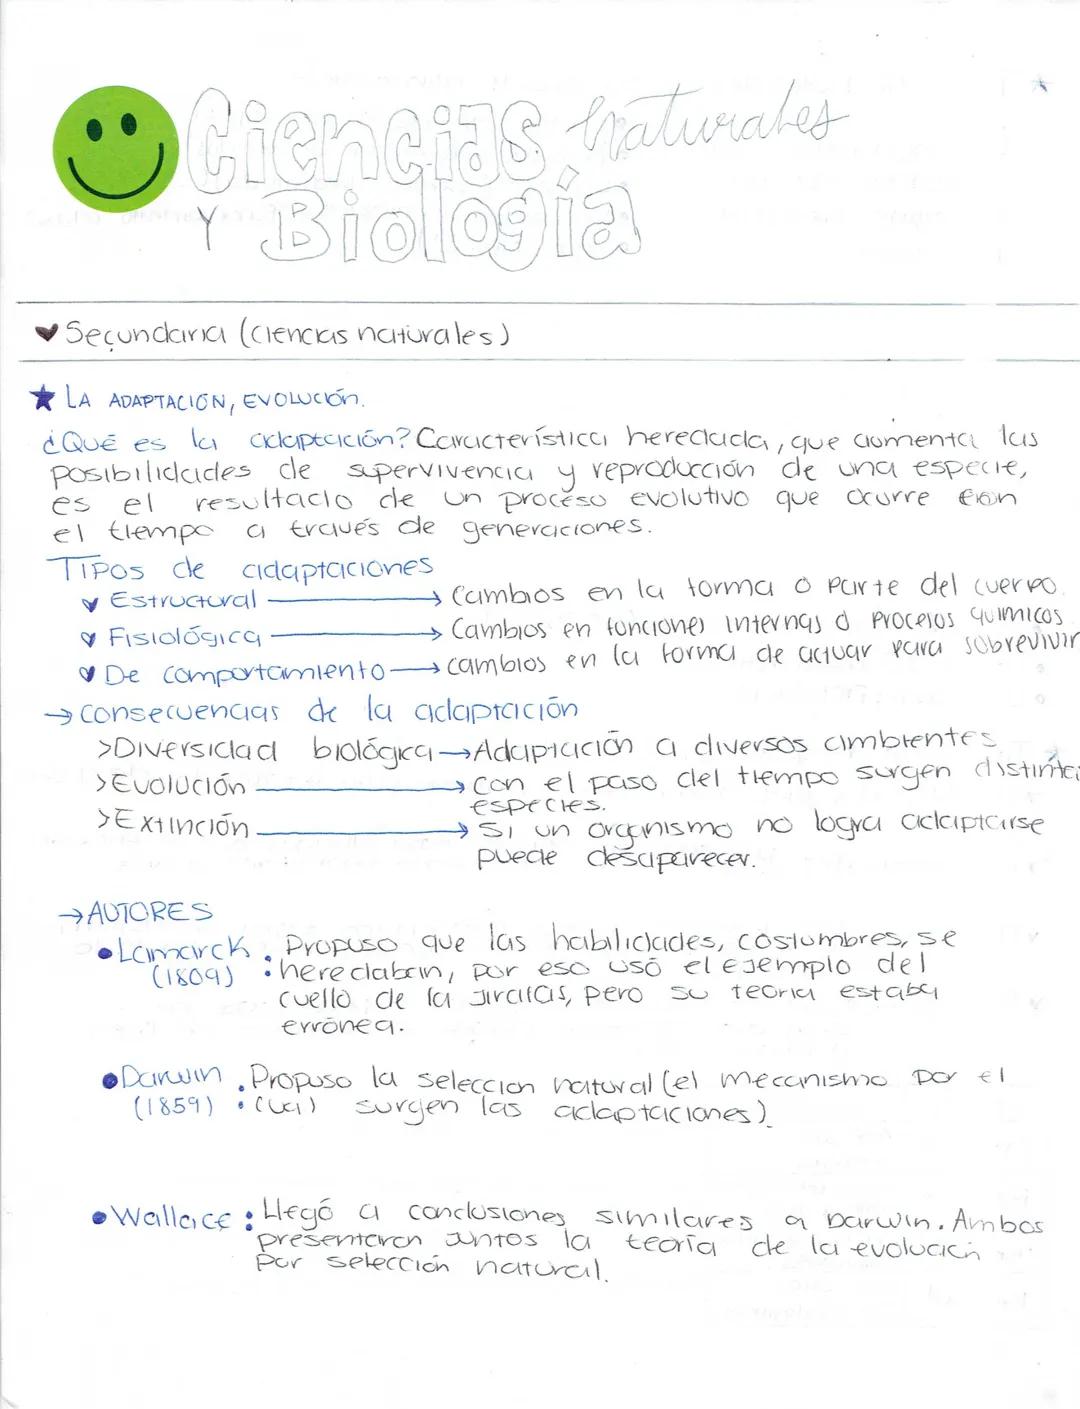 Ciencias naturales
Y Biología
Secundaria (ciencias naturales)
LA ADAPTACIÓN, EVOLUCIÓN.
¿Qué es la adaptación? Característica heredada, que aumenta las
posibilidades de supervivencia y reproducción de una especie,
es el resultado de un proceso evolutivo que ocurre con
el tiempo a través de generaciones.
Tipos de adaptaciones
Estructural → Cambios en la forma o parte del cuerpo.
Fisiológica → Cambios en funciones internas o procesos químicos
De comportamiento → cambios en la forma de actuar para sobrevivir
→ consecuencias de la adaptación
>Diversidad biológica → Adaptación a diversos ambientes
>Evolución → con el paso del tiempo surgen distinta
especies.
>Extinción → Si un organismo no logra adaptarse
puede desaparecer.
→ AUTORES
•Lamarck : Propuso que las habilidades, costumbres, se
(1809) heredaban, por eso usó el ejemplo del
cuello de la jirafas, pero su teoría estaba
errónea.
•Darwin : Propuso la seleccion natural (el mecanismo por el
(1859) cual surgen las adaptaciones).
•Wallace : Llegó a conclusiones similares a Darwin. Ambos
presentaron juntos la teoría de la evolución
por selección natural.